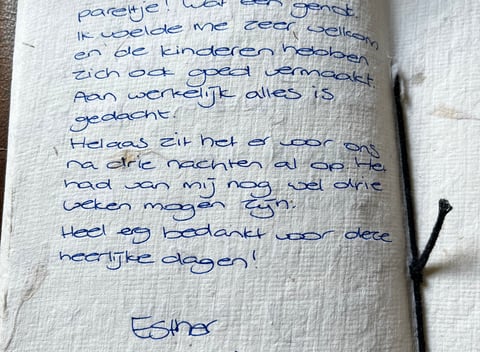 pareltje! Wat een genot.
Ik voelde me zeer welkom
en de kinderen hebben
zich ook goed vermaakt.
Aan werkelijk alles is
gedacht.
Helaas zit het er voor ons
na drie nachten al op. Het
had van mij nog wel drie
weken mogen zijn.
Heel erg bedankt voor deze
heerlijke dagen!
Esther